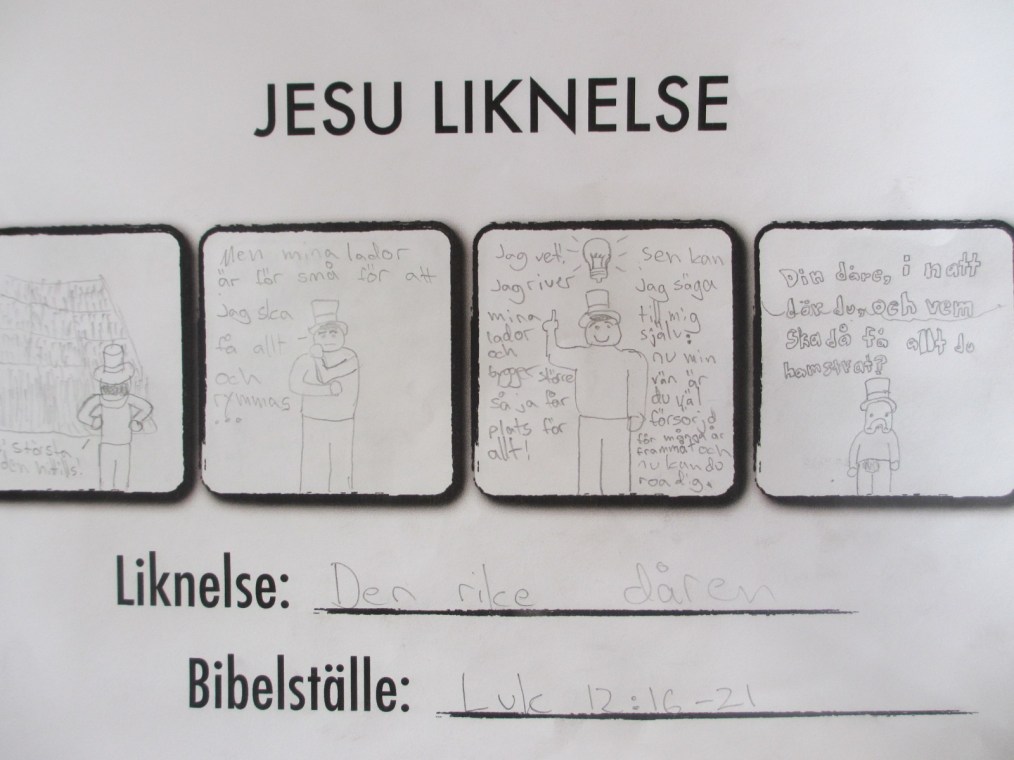 JESU LIKNELSE
största
den hitills!
Men mina lador
är för små för att
jag ska
få allt
och
rymmas
...
Jag vet!
Jag river
mina
lador
och
bygger större
så ja får
plats för
allt!
sen kan
jag säga
till mig
själv:
nu min
vän är
du väl
försörjd
för många år
frammåt och
nu kan du
roa dig.
Din dåre, i natt
dör du, och vem
ska då få allt du
hamstrat?
Liknelse: Den rike dåren
Bibelställe: Luk 12:16-21